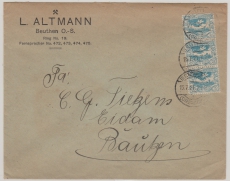 L. ALTMANN
Beuthen O.-S.
Ring No. 14.
Fernsprecher No. 472, 473, 474, 475.
Fa:
C. G. Tietzens
Eidam
Bautzen